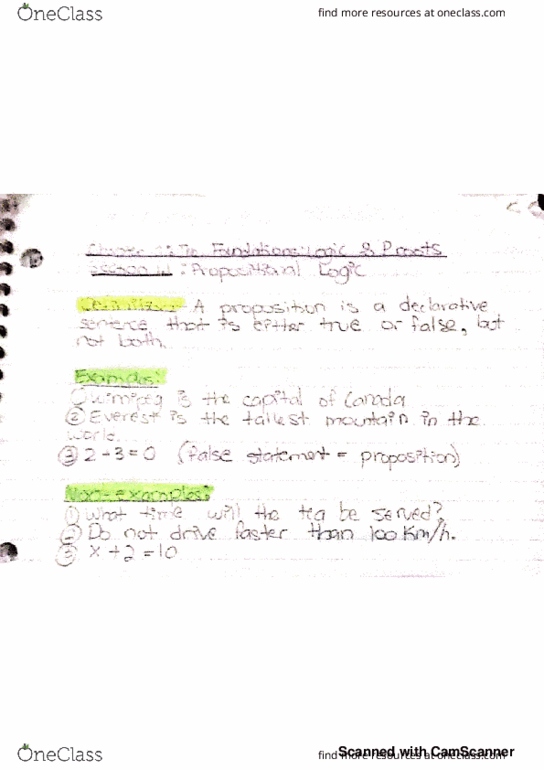 OneClass
find more resources at oneclass.com
Chapter 1: The Foundations: Logic & Proofs
Section 1.1: Propositional Logic
Definition: A proposition is a declarative
sentence that is either true or false, but
not both.
Examples:
① Winnipeg is the capital of Canada
② Everest is the tallest mountain in the
world.
③ 2+3=0 (false statement = proposition)
Non-examples:
① What time will the tea be served?
② Do not drive faster than 100 Km/h.
③ x+2=10
OneClass
find more resources at oneclass.com
Scanned with CamScanner